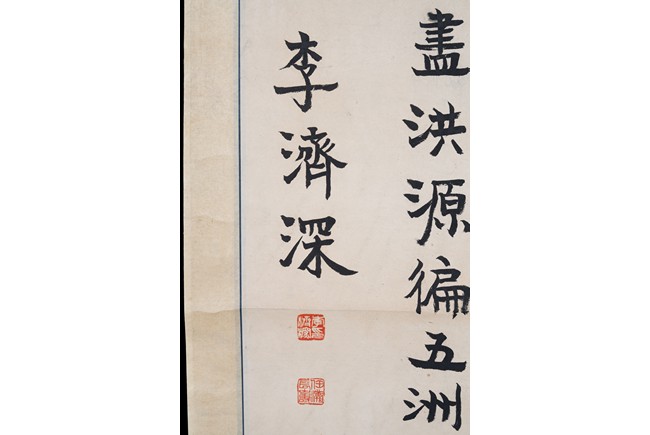 盡洪源徧五洲
李濟深